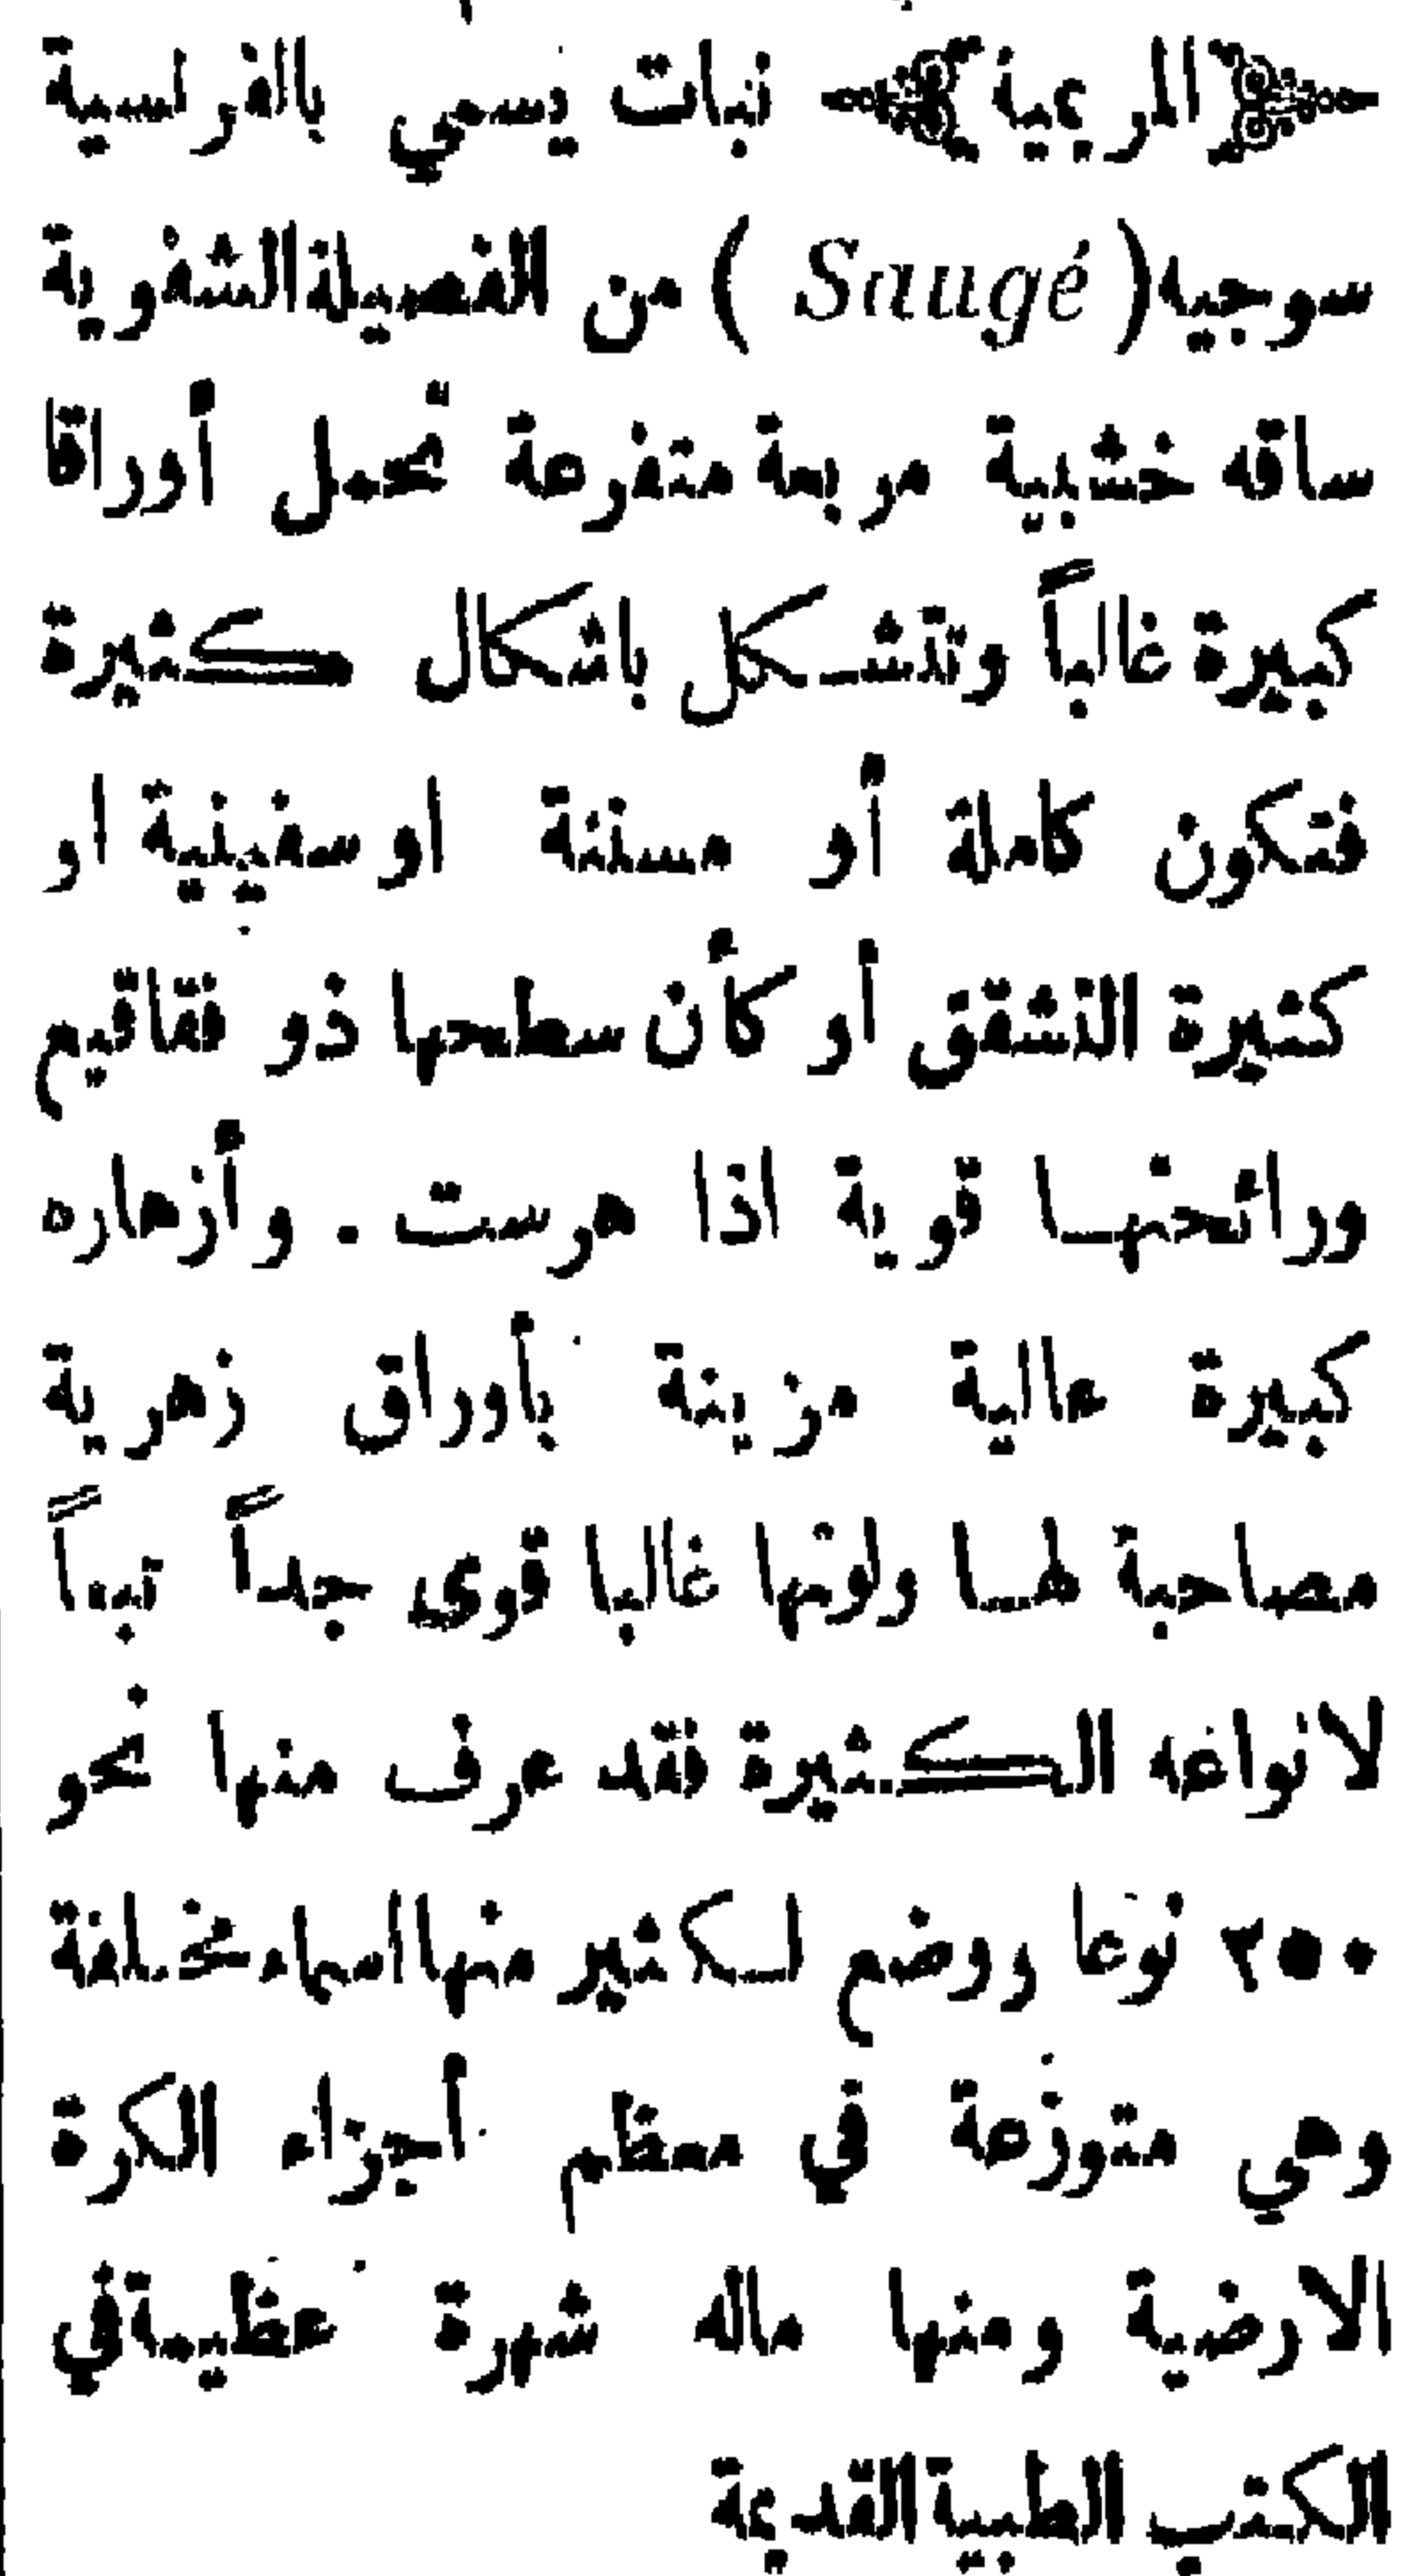 ﴿المريمية﴾ نبات يسمي بالفرنسية
سوجيه (Saugé) من الفصيلة الشفوية
ساقه خشبية مربعة متفرعة تحمل أوراقا
كبيرة غالباً وتتشكل باشكال كثيرة
فتكون كاملة أو مسننة او سفينية او
كثيرة التشقق أو كأن سطحها ذو فقاقيع
ورائحتها قوية اذا هرست . وأزهاره
كبيرة عالية مزينة بأوراق زهرية
مصاحبة لهـا ولونها غالبا قوى جداً تبعاً
لانواعه الكثيرة فقد عرف منها نحو
٢٥٠ نوعا ووضع لكثير منها اسماء مختلفة
وهي متوزعة في معظم أجزاء الكرة
الارضية ومنها ماله شهرة عظيمة في
الكتب الطبية القديمة